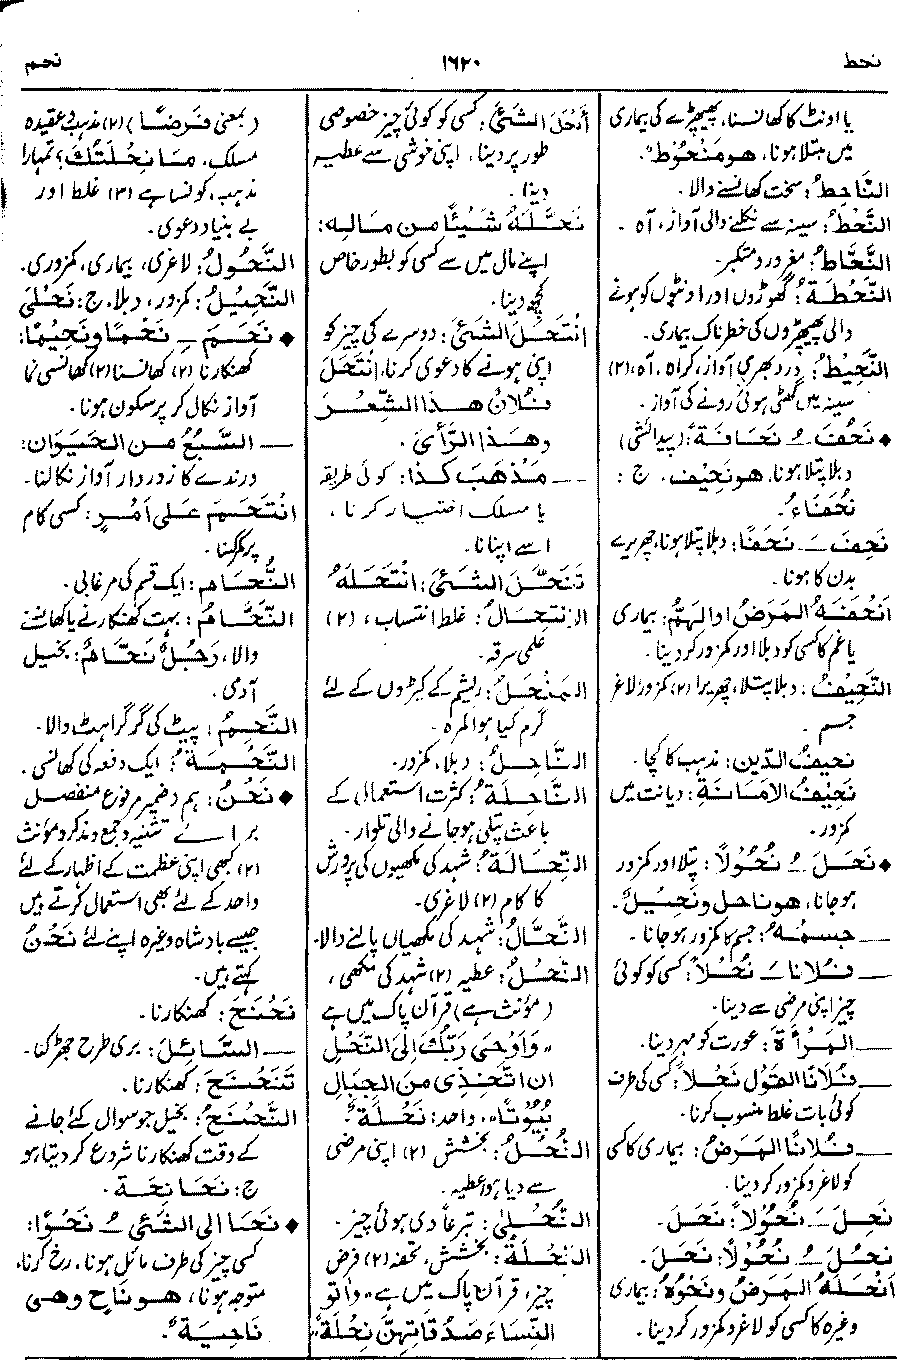 نحط
۱۶۲۰
نحم
یا اونٹ کا کھانسنا، پھیپھڑے کی بیماری
میں مبتلا ہونا، هو مَنْحُوطٌ.
النَّاحِطُ: سخت کھانسنے والا.
النَّحْطُ: سینہ سے نکلنے والی آواز، آہ.
النَّحَّاطُ: مغرور و متکبر.
النَّحْطَةُ: گھوڑوں اور اونٹوں کو ہونے
والی پھیپھڑوں کی خطرناک بیماری.
النَّحِيطُ: درد بھری آواز، کراہ، آہ، (۲)
سینہ میں گھٹی ہوئی رونے کی آواز.
◆ نَحُفَ ـُ نَحَافَةً: (پیدائشی)
دبلا پتلا ہونا، هو نَحِيف، ج:
نُحَفَاءُ.
نَحِفَ ـَ نَحَفًا: دبلا پتلا ہونا، چھریرے
بدن کا ہونا.
أَنْحَفَهُ المَرَضُ او الهَمُّ: بیماری
یا غم کا کسی کو دبلا اور کمزور کر دینا.
النَّحِيفُ: دبلا پتلا، چھریرا (۲) کمزور لاغر
جسم.
نحيفُ الدِّين: مذہب کا کچا.
نَحِيفُ الأَمَانَةِ: دیانت میں
کمزور.
◆ نَحَلَ ـُ نُحُولاً: پتلا اور کمزور
ہو جانا، هو ناحل و نَحِيلٌ.
ــ جِسْمُهُ: جسم کا کمزور ہو جانا.
ــ فُلانا ـَ نُحْلاً: کسی کو کوئی
چیز اپنی مرضی سے دینا.
ــ المَرْأَةَ: عورت کو مہر دینا.
ــ فُلَانًا القَوْلَ نَحْلاً: کسی کی طرف
کوئی بات غلط منسوب کرنا.
ــ فُلانًا المَرَضُ: بیماری کا کسی
کو لاغر و کمزور کر دینا.
نَحِلَ ـَ نُحُولاً: نَحَلَ.
نَحُلَ ـُ نُحُولاً: نَحَلَ.
أَنْحَلَهُ المَرَضُ و نَحْوُهُ: بیماری
وغیرہ کا کسی کو لاغر و کمزور کر دینا.
أَنْحَلَ الشَّيْءَ: کسی کو کوئی چیز خصوصی
طور پر دینا، اپنی خوشی سے عطیہ
دینا.
نَحَّلَهُ شَيْئًا من مَالِهِ:
اپنے مال میں سے کسی کو بطور خاص
کچھ دینا.
انْتَحَلَ الشَّيْءَ: دوسرے کی چیز کو
اپنی ہونے کا دعوی کرنا، انْتَحَلَ
فُلَانٌ هَذَا الشِّعْرَ
وهَذَا الرَّأْيَ.
ــ مَذْهَبَ كَذَا: کوئی طریقہ
یا مسلک اختیار کرنا،
اسے اپنانا.
تَنَحَّلَ الشَّيْءَ: انْتَحَلَهُ
الانْتِحَالُ: غلط انتساب، (۲)
علمی سرقہ.
المَنْحَلُ: ریشم کے کیڑوں کے لئے
گرم کیا ہوا کمرہ.
النَّاحِلُ: دبلا، کمزور.
النَّاحِلَةُ: کثرت استعمال کے
باعث پتلی ہو جانے والی تلوار.
النِّحَالَةُ: شہد کی مکھیوں کی پرورش
کا کام (۲) لاغری.
النَّحَّالُ: شہد کی مکھیاں پالنے والا.
النَّحْلُ: عطیہ (۲) شہد کی مکھی،
(مؤنث ہے) قرآن پاک میں ہے
«وَأَوْحَى رَبُّكَ إلَى النَّحْلِ
ان اتَّخِذِي مِنَ الجِبَالِ
بُيُوتًا»، واحد: نَحْلَةٌ.
النُّحْلُ: بخشش (۲) اپنی مرضی
سے دیا ہوا عطیہ.
النُّحْلَى: تبرعاً دی ہوئی چیز.
النِّحْلَةُ: بخشش، تحفہ (۲) فرض
چیز، قرآن پاک میں ہے «وآتو
النِّسَاءَ صَدُقَاتِهِنَّ نِحْلَةً»
(بمعنی فَرْضًا) (۲) مذہبی عقیدہ
مسلک، مَا نِحْلَتُكَ؟ تمہارا
مذہب کونسا ہے (۳) غلط اور
بے بنیاد دعوی.
النُّحُولُ: لاغری، بیماری، کمزوری.
النَّحِيلُ: کمزور، دبلا، ج: نَحْلَى
◆ نَحَمَ ـِ نَحْمًا و نَحِيمًا:
کھنکارنا (۲) کھانسنا (۳) کھانسی نما
آواز نکال کر پرسکون ہونا.
ــ السَّبُعُ من الحَيَوان:
درندے کا زوردار آواز نکالنا.
انْتَحَمَ عَلى أَمْرٍ: کسی کام
پر
النُّحَام: ایک قسم کی مرغابی.
النَّحَّامُ: بہت کھنکارنے یا کھانسنے
والا، رَجُلٌ نَحَّامٌ: بخیل
آدی.
النَّحِمُ: پیٹ کی گڑگڑاہٹ والا.
النَّحْمَةُ: ایک دفعہ کی کھانسی.
◆ نَحْنُ: ہم، ضمیر مرفوع منفصل
برائے تثنیہ و جمع و مذکر و مؤنث
(۲) کبھی اپنی عظمت کے اظہار کے لئے
واحد کے لئے بھی استعمال کرتے ہیں
جیسے بادشاہ وغیرہ اپنے لئے نَحْنُ
کہتے ہیں.
نَحْنَحَ: کھنکارنا.
ــ السَّائِلَ: بری طرح جھڑکنا.
تَنَحْنَحَ: کھنکارنا.
النَّحْنَحُ: بخیل جو سوال کئے جانے
کے وقت کھنکارنا شروع کر دیتا ہو
ج: نَحَانِحَة.
◆ نَحَا إلى الشَّيْءِ ـُ نَحْوًا:
کسی چیز کی طرف مائل ہونا، رخ کرنا،
متوجہ ہونا، هو نَاحٍ وهي
نَاحِيَةٌ.